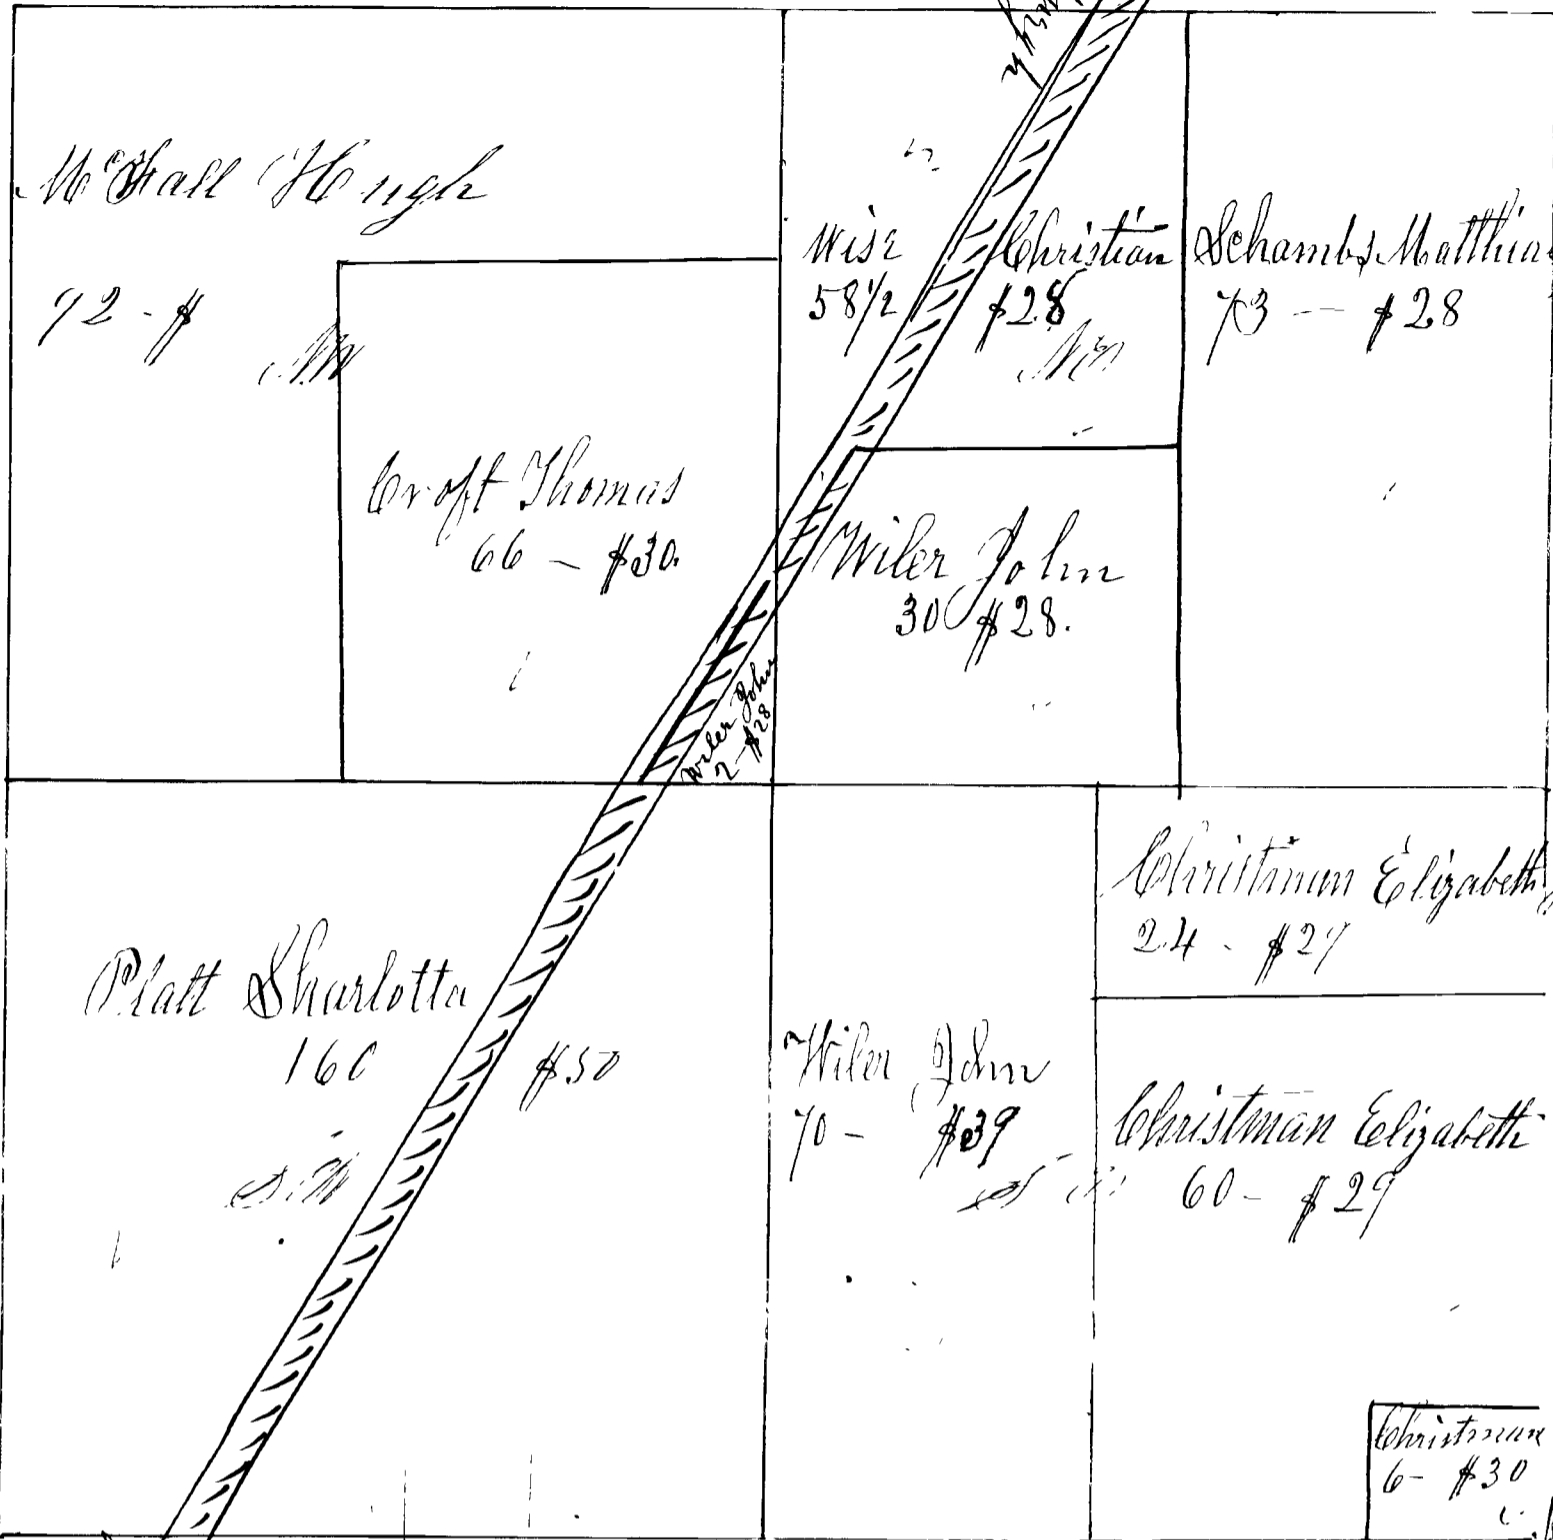 McFall Hugh
92 - $
NW
Croft Thomas
66 - $30.
Wise Christian
58½ $28
Schambs Matthias
73 -- $28
Wiler John
30 $28.
Wiler John
2 - $28
Platt Sharlotta
160 $50
S.W
Wiler John
70 - $39
Christman Elizabeth
24 - $29
Christman Elizabeth
60 - $29
Christman
6 - $30